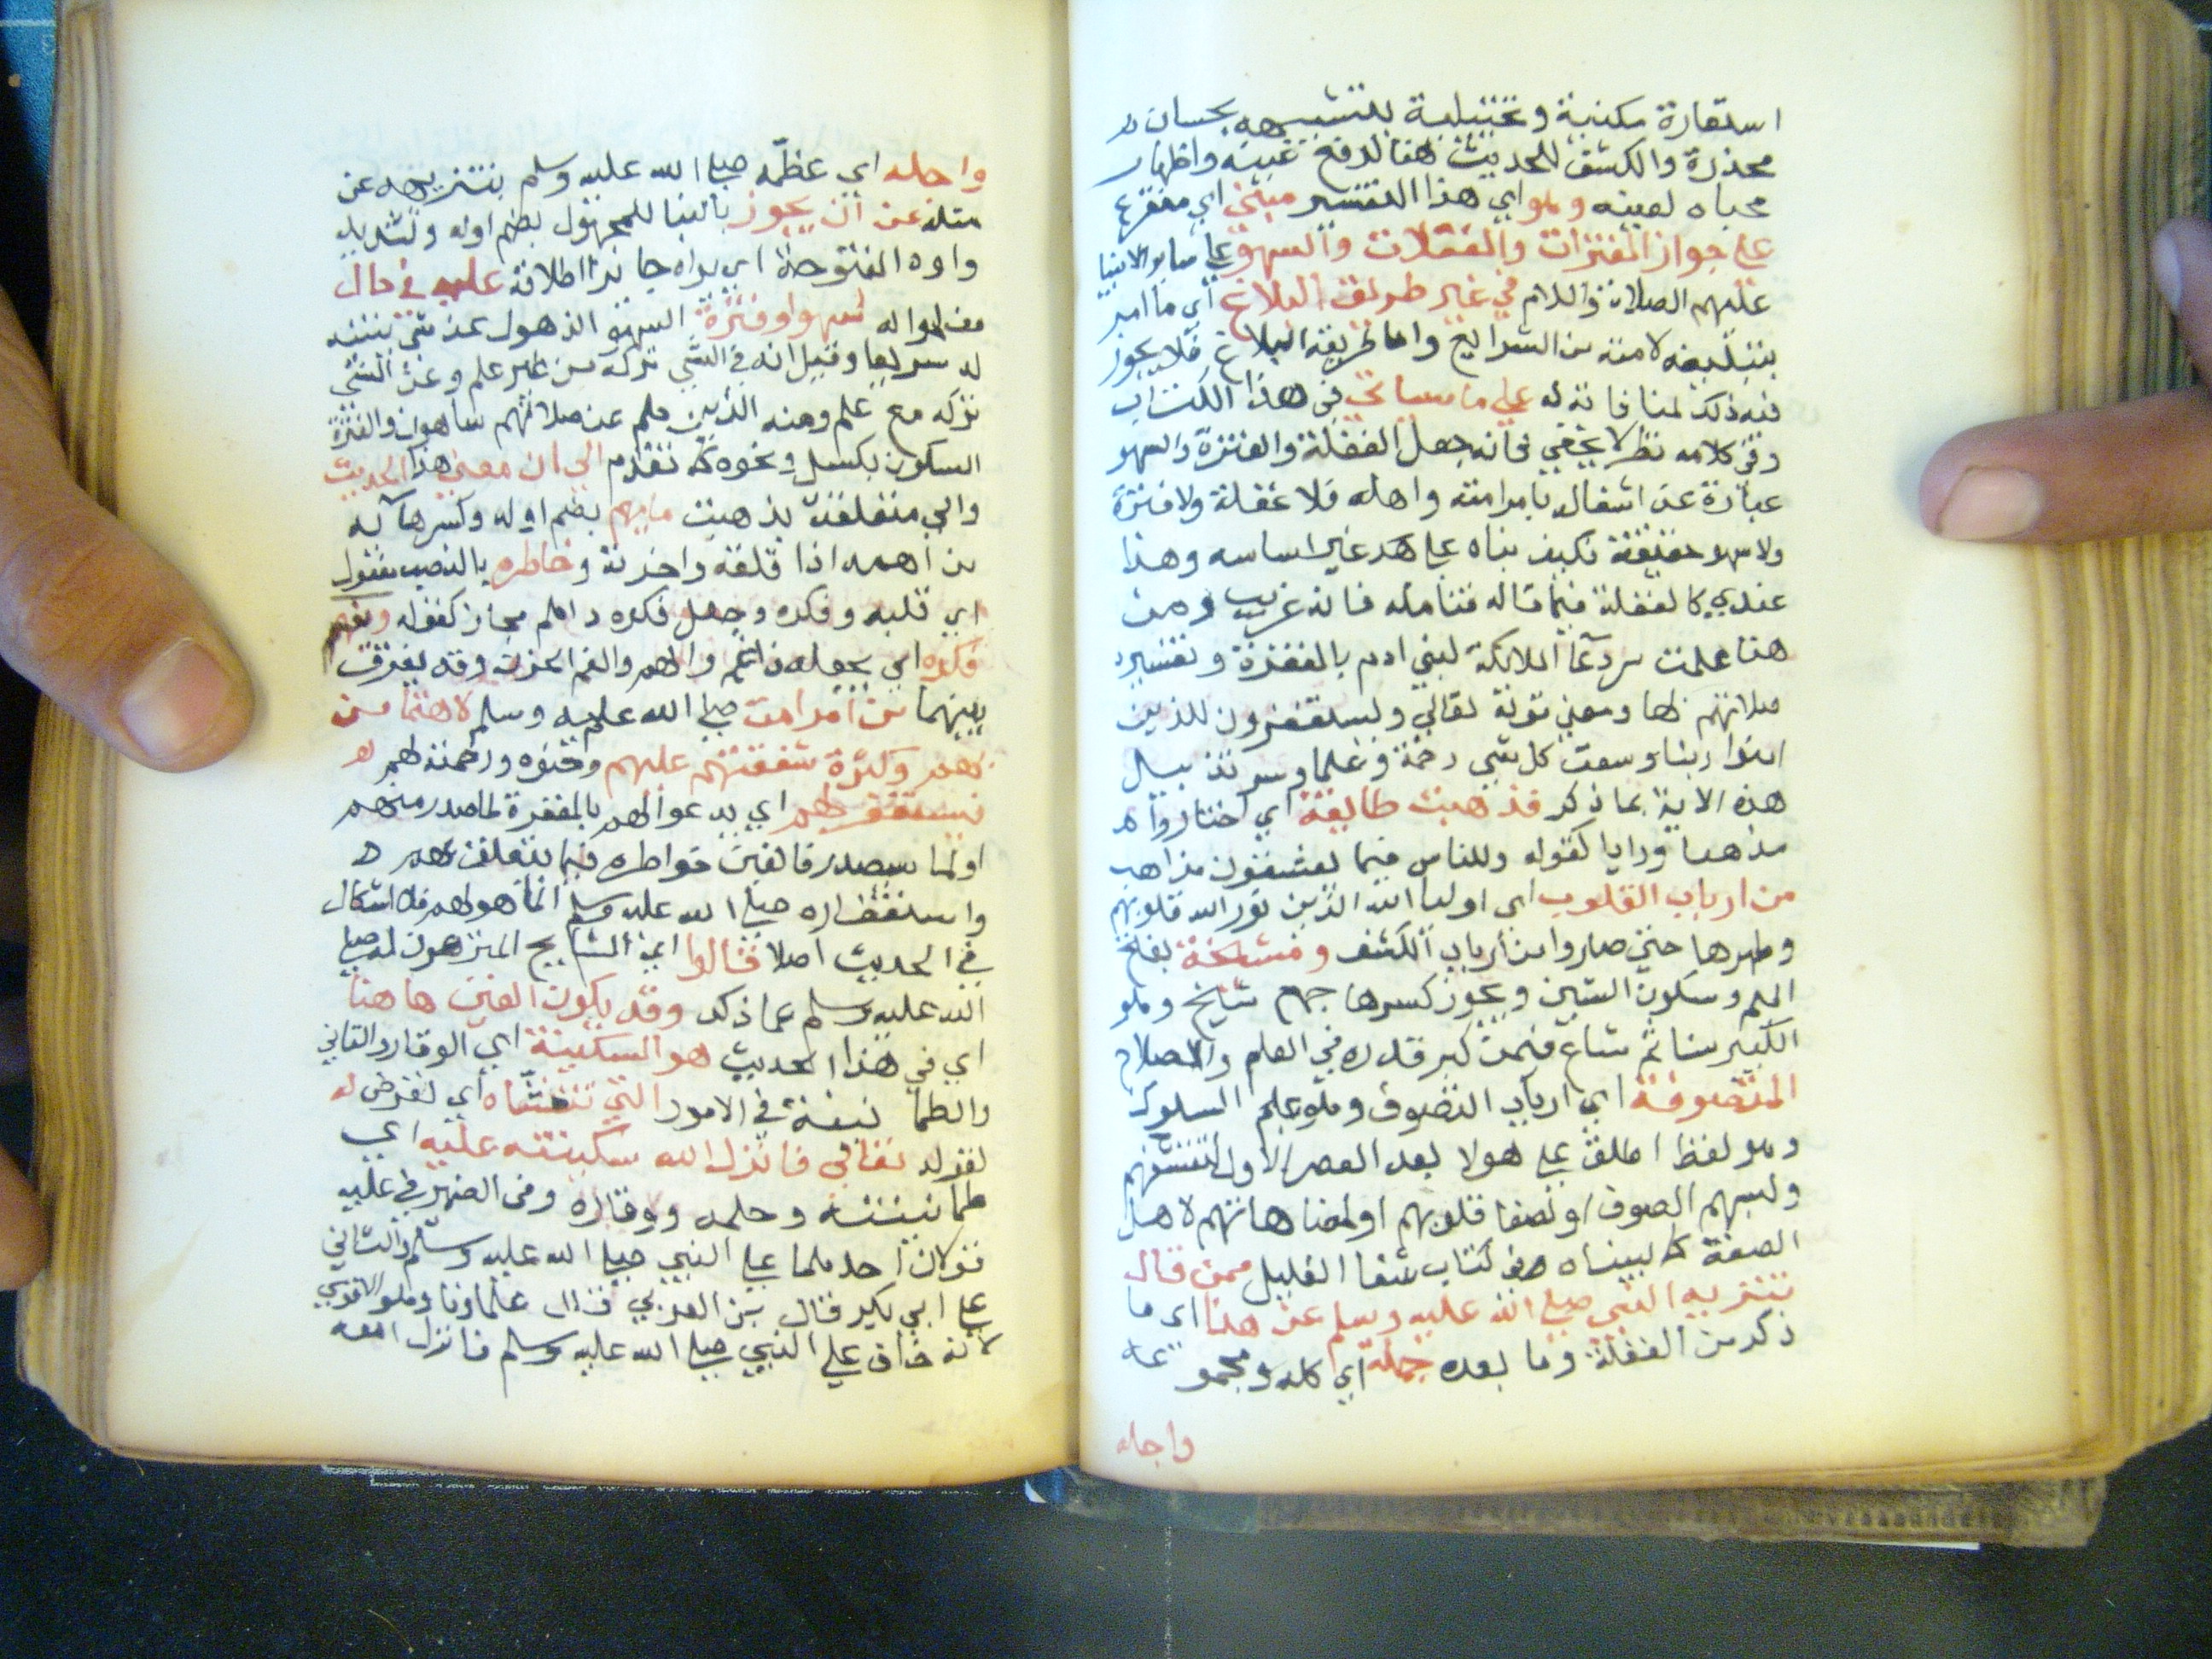 استعارة مكنية وتخييلية للتشبيهه بحسان
مخدرة والكشف للحديث هنا لدفع غينه واظهار
محياه لعينه وهو اي هذا التفسير مبني اي متفرع
على جواز الفترات والغفلات والسهو على ساير الانبيا
عليهم الصلاة والسلام في غير طريق البلاغ اي ما امر
بتبليغه لامته من الشرايع واما طريقة البلاغ فلا يجوز
فيه ذلك لمنافاته له على ما سياتي في هذا الكتاب
وفي كلامه نظر لا يخفي فانه جعل الغفلة والفترة والسهو
عبارة عن اشتغاله بامر امته واهله فلا غفلة ولا فترة
ولا سهو حقيقة فكيف بناه على غير اساسه وهذا
عندي كالغفلة فيما قاله فتامله فانه غريب ومن
هنا علمت سر دعا الملايكة لبني ادم بالمغفرة وتفسير
صلاتهم بها ومعني قوله تعالي ويستغفرون للذين
امنوا ربنا وسعت كل شي رحمة وعلما وسر تذييل
هذه الاية بما ذكر فذهبت طايفة اي اختاروا
مذهبا ورايا كقوله وللناس فيما يعشقون مذاهب
من ارباب القلوب اي اوليا الله الذين نور الله قلوبهم
وطهرها حتي صاروا من ارباب الكشف ومشيخة بفتح
الميم وسكون الشين ويجوز كسرها جمع شيخ وهو
الكبير سنا ثم شاع فيمن كبر قدره في العلم والصلاح
المتصوفة اي ارباب التصوف وهو علم السلوك
وهو لفظ اطلق على هولا بعد العصر الاول لتقشفهم
ولبسهم الصوف او لصفا قلوبهم او لمضاهاتهم لاهل
الصفة كما بيناه في كتاب شفا الغليل ممن قال
بتنزيه النبي صلى الله عليه وسلم عن هذا اي ما
ذكر من الغفلة وما بعده جملة اي كله ومجموعه
واجله
واجله اي عظمه صلى الله عليه وسلم بتنزيهه عن
مثله عن ان يجوز بالبنا للمجهول بضم اوله وتشديد
واوه المفتوحة اي يراه جايزا اطلاقه عليه في حال
من احواله سهوا وفترة السهو الذهول عن شي يتنبه
له سريعا وقيل انه في الشي تركه من غير علم وعن الشي
تركه مع علم ومنه الذين هم عن صلاتهم ساهون والفترة
السكون بكسل ونحوه كما تقدم الي ان معني هذا الحديث
والي متعلقة بذهبت ما يهم بضم اوله وكسر هايه
من اهمه اذا قلقه واحزنه وخاطره بالنصب مفعول
اي قلبه وفكره وجعل فكره داهم مجاز كقوله ويغم
فكره اي يجعله ذا غم والهم والغم الحزن وقد يفرق
بينهما من امر امته صلى الله عليه وسلم لاهتمامه
بهم وكثرة شفقته عليهم وحنوه ورحمته لهم
فيستغفر لهم اي يدعوا لهم بالمغفرة لما صدر منهم
او لما سيصدر فالغين خواطره فيما يتعلق بهم
واستغفاره صلى الله عليه وسلم انما هو لهم فلا اشكال
في الحديث اصلا قالوا اي المشايخ المنزهون له صلى
الله عليه وسلم عما ذكر وقد يكون الغين هاهنا
اي في هذا الحديث هو السكينة اي الوقار والتاني
والطمانينة في الامور التي تتغشاه اي تعرض له
لقوله تعالي فانزل الله سكينته عليه اي
طمانينته وحلمه ووقاره وفي الضمير في عليه
قولان احدهما على النبي صلى الله عليه وسلم والثاني
على ابي بكر قال بن العربي قال علماونا وهو الاقوي
لانه خاف على النبي صلى الله عليه وسلم فانزل الله